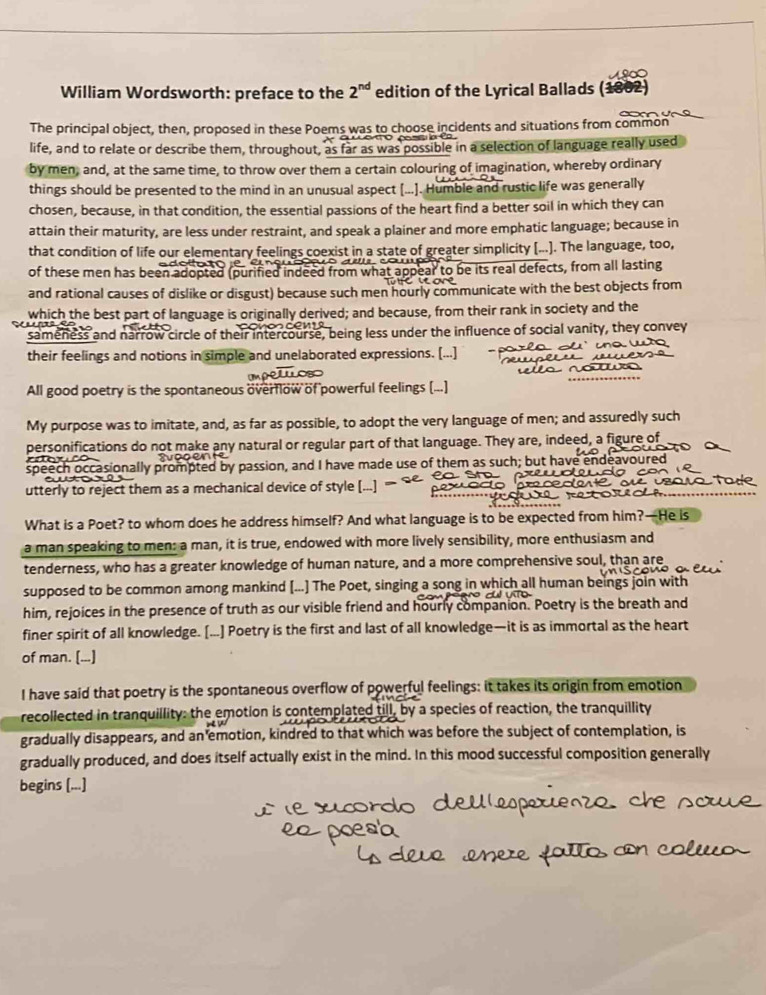 1800
William Wordsworth: preface to the 2nd edition of the Lyrical Ballads (1802)
comune
The principal object, then, proposed in these Poems was to choose incidents and situations from common
x quanto possibile
life, and to relate or describe them, throughout, as far as was possible in a selection of language really used
by men, and, at the same time, to throw over them a certain colouring of imagination, whereby ordinary
umile
things should be presented to the mind in an unusual aspect [...]. Humble and rustic life was generally
chosen, because, in that condition, the essential passions of the heart find a better soil in which they can
attain their maturity, are less under restraint, and speak a plainer and more emphatic language; because in
that condition of life our elementary feelings coexist in a state of greater simplicity [...]. The language, too,
adottato il linguaggio delle campagne
of these men has been adopted (purified indeed from what appear to be its real defects, from all lasting
tutte le ore
and rational causes of dislike or disgust) because such men hourly communicate with the best objects from
which the best part of language is originally derived; and because, from their rank in society and the
ristretto conoscenze
sameness and narrow circle of their intercourse, being less under the influence of social vanity, they convey
their feelings and notions in simple and unelaborated expressions. [...]
- parla di una vita
semplice immersa
nella natura
impetuoso
All good poetry is the spontaneous overflow of powerful feelings [...]
My purpose was to imitate, and, as far as possible, to adopt the very language of men; and assuredly such
personifications do not make any natural or regular part of that language. They are, indeed, a figure of
retorica ho provato a
speech occasionally prompted by passion, and I have made use of them as such; but have endeavoured
utterly to reject them as a mechanical device of style [...]
- se la sta prendendo con il
periodo precedente di usava tante
figure retoriche
What is a Poet? to whom does he address himself? And what language is to be expected from him?—He is
a man speaking to men: a man, it is true, endowed with more lively sensibility, more enthusiasm and
tenderness, who has a greater knowledge of human nature, and a more comprehensive soul, than are
uniscono a lui
supposed to be common among mankind [...] The Poet, singing a song in which all human beings join with
compagno di vita
him, rejoices in the presence of truth as our visible friend and hourly companion. Poetry is the breath and
finer spirit of all knowledge. [...] Poetry is the first and last of all knowledge—it is as immortal as the heart
of man. [...]
I have said that poetry is the spontaneous overflow of powerful feelings: it takes its origin from emotion
finché
recollected in tranquillity: the emotion is contemplated till, by a species of reaction, the tranquillity
new imparentata
gradually disappears, and an emotion, kindred to that which was before the subject of contemplation, is
gradually produced, and does itself actually exist in the mind. In this mood successful composition generally
begins [...]
è il ricordo dell'esperienza che scrive
la poesia
↳ deve essere fatto con calma